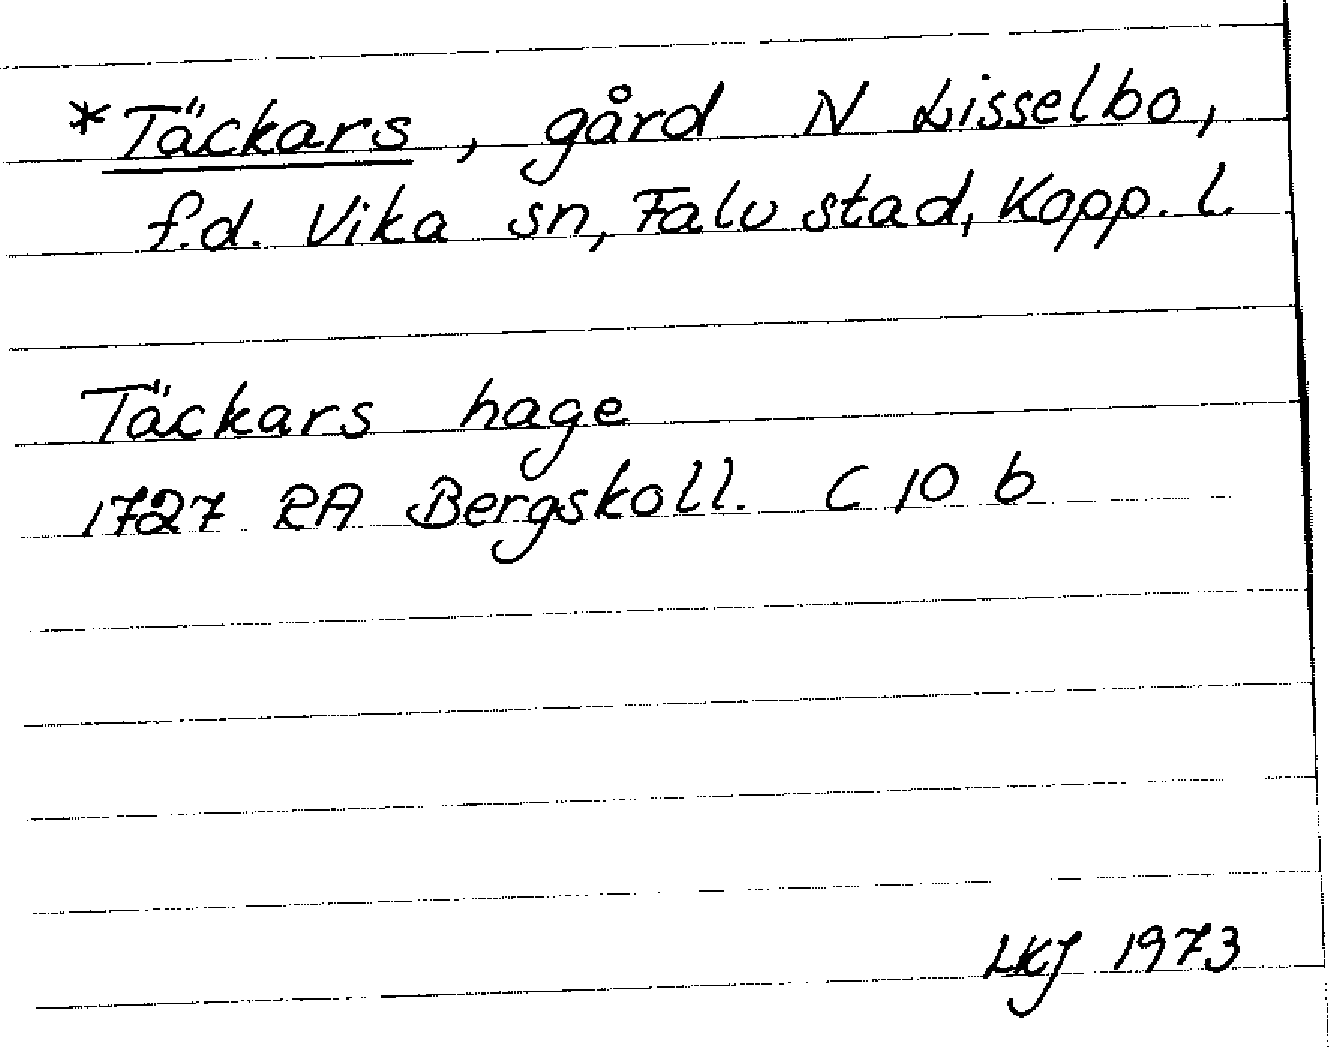 *Täckars, gård N Lisselbo,
f.d. Vika sn, Falu stad, Kopp. l.
Täckars hage
1727 RA Bergskoll. C 10 b
LKJ 1973